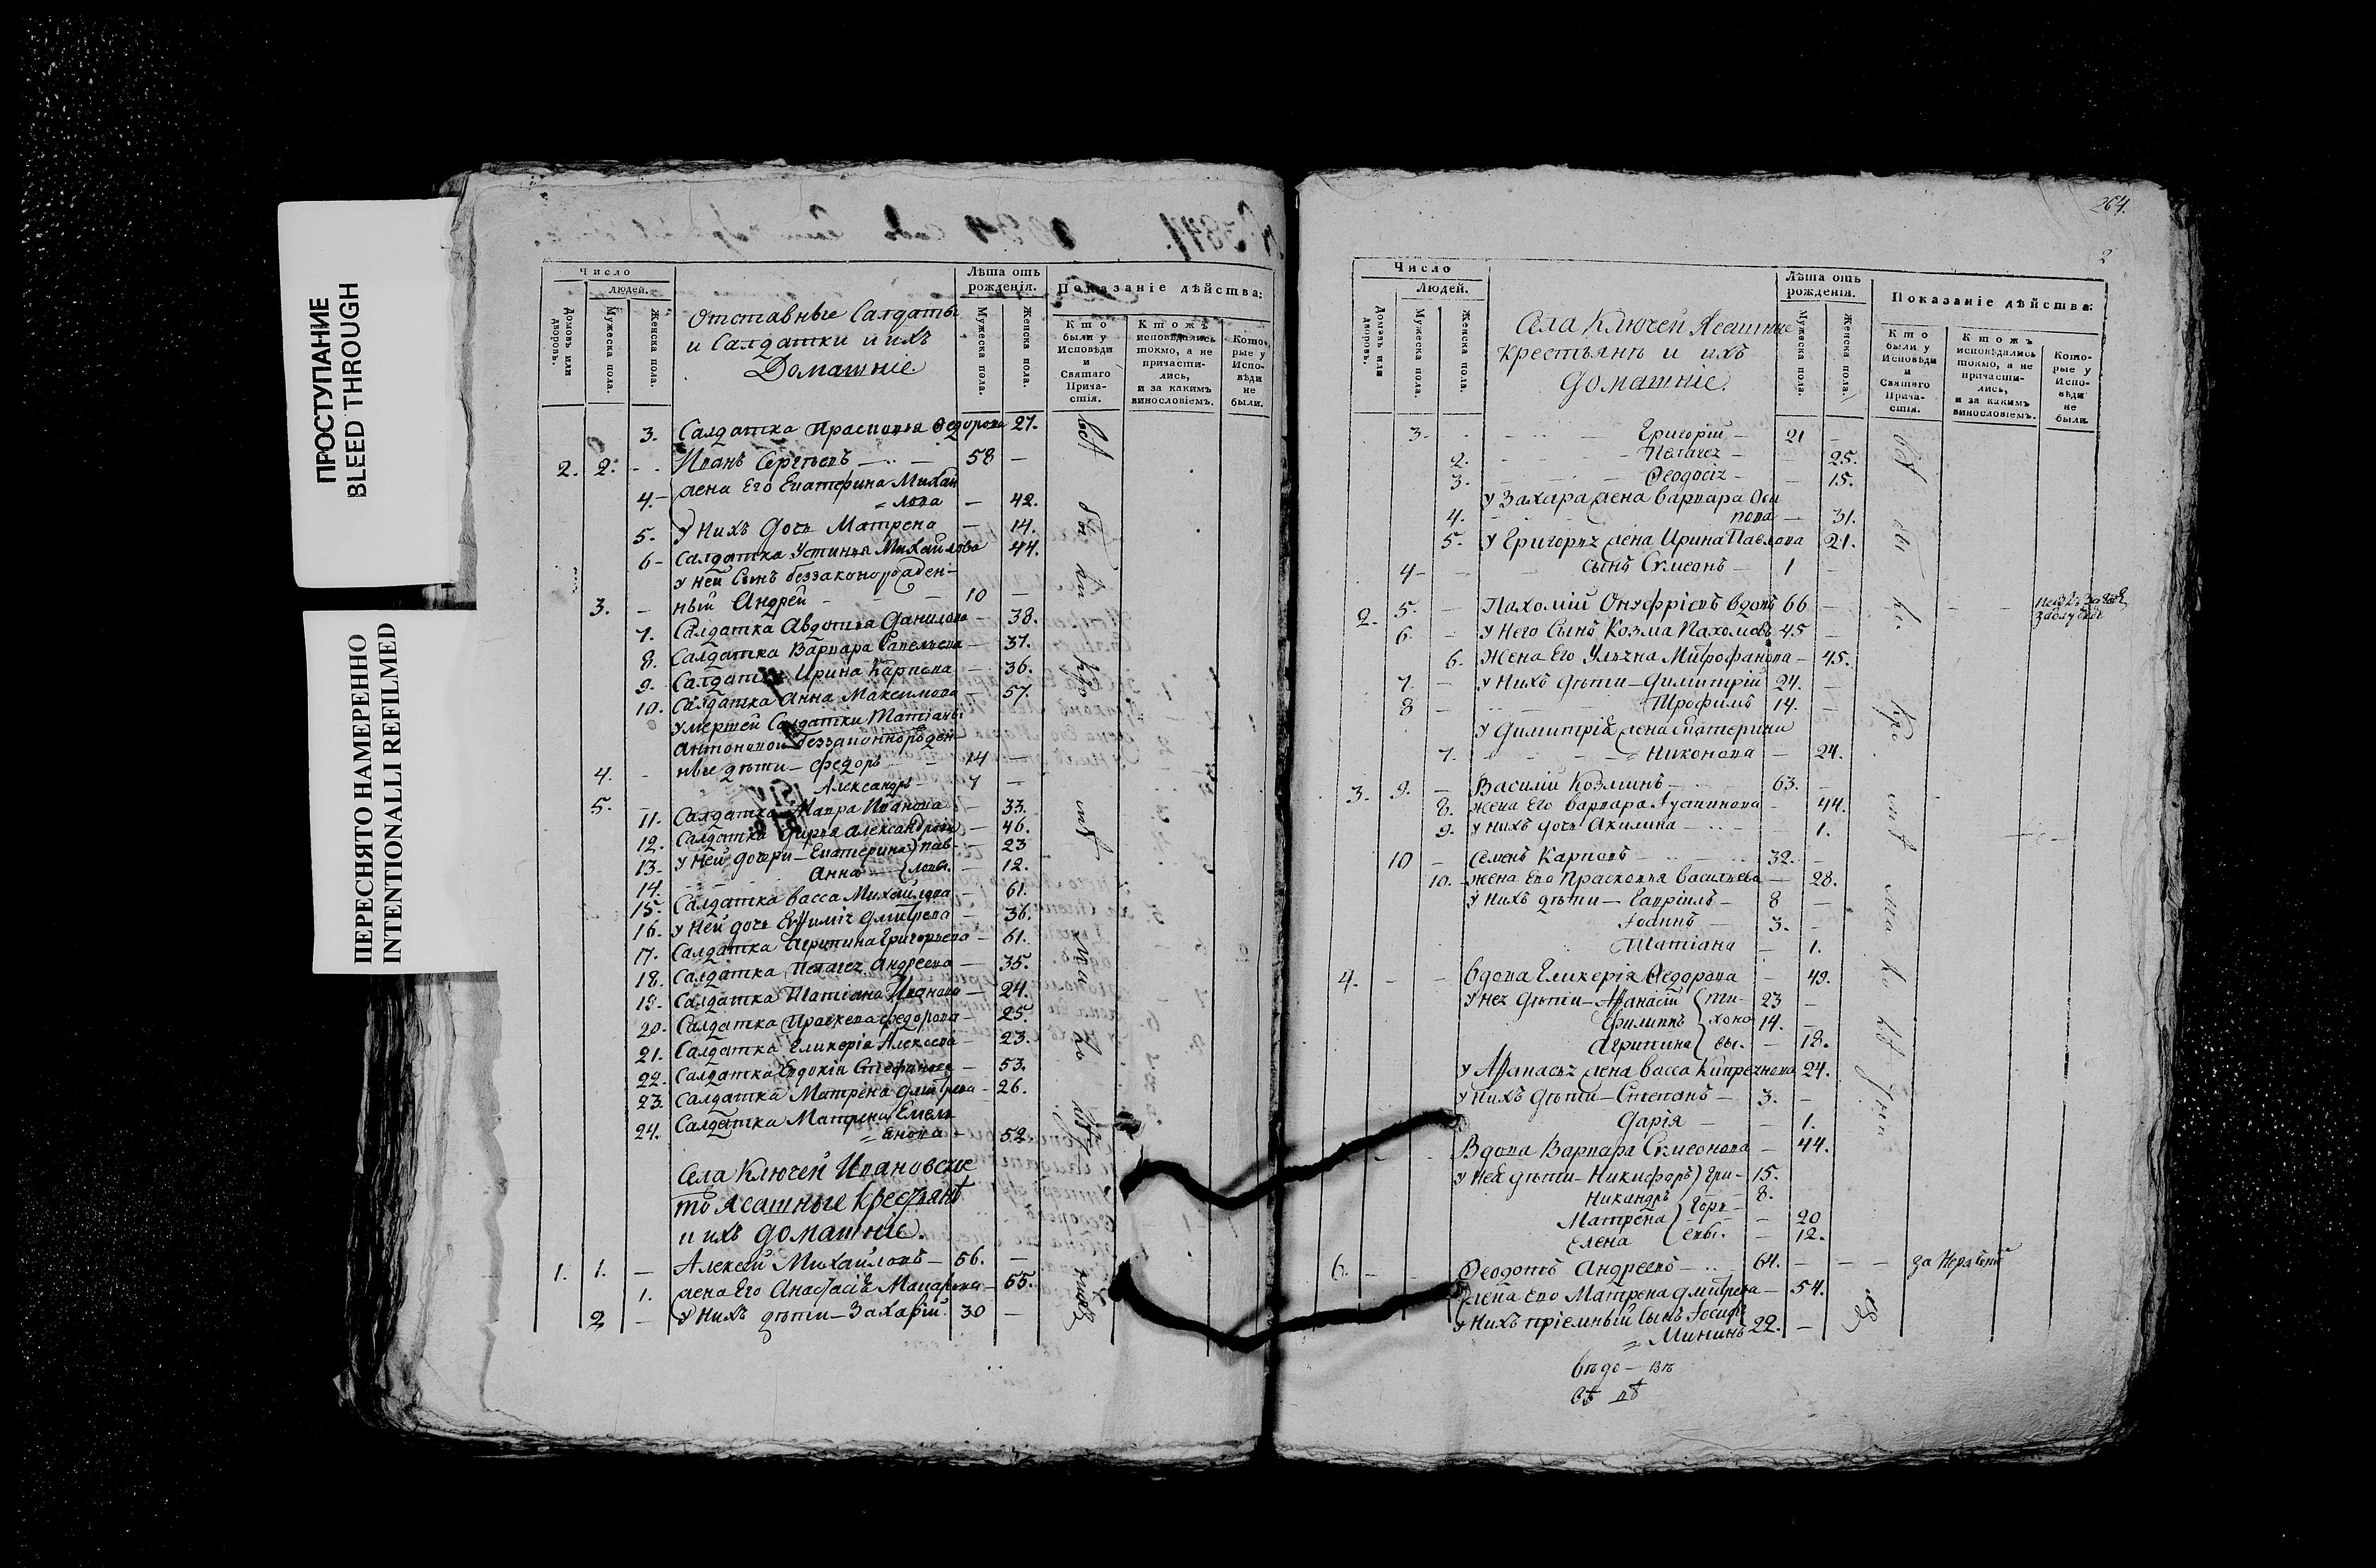 ПРОСТУПАНИЕ
BLEED THROUGH
ПЕРЕСНЯТО НАМЕРЕННО
INTENTIONALLI REFILMED
Число
людей.
Домовъ или дворовъ.
Мужеска пола.
Женска пола.
Отставные Салдаты
и Салдатки и ихъ
Домашніе
Лѣта отъ
рожденія.
Мужеска пола.
Женска пола.
Показаніе дѣйства:
Кто
были у
Исповѣди
и
Святаго
Прича-
стія.
Ктожъ
исповѣдались
токмо, а не
причасти-
лись,
и за какимъ
винословіемъ.
Кото-
рые у
Испо-
вѣди
не
были.
3. Салдатка Прасковья Ѳедорова 27.
2. 2. Иванъ Сергѣевъ — 58 —
4. жена Его Екатерина Михай
= лова — 42.
5. У нихъ дочь Матрена — 14.
6 - Салдатка Устинья Михайлова 44.
у ней Сынъ беззаконорожден-
3. ный Андрей — 10 —
7. Салдатка Авдотья Данилова — 38.
8. Салдатка Варвара Савельева — 37.
9. Салдатка Ирина Карпова — 36.
10. Салдатка Анна Максимова — 57.
умершей Салдатки Татіаны
Антоновой беззаконнорожден
4. ные дѣти — Федоръ — 14 —
5. Александръ — 7 —
11. Салдатка Мавра Иванова — 33.
12. Салдатка Дарья Александрова — 46.
13. У ней дочери — Екатерина Пав- — 23
14. Анна ловы. — 12.
15. Салдатка Васса Михайлова — 61.
16. У ней дочь Евфимія Дмитрева — 36.
17. Салдатка Агрипина Григорьева — 61.
18. Салдатка Пелагея Андреева — 35.
19. Салдатка Татіана Иванова — 24.
20. Салдатка Прасковья Федорова — 25.
21. Салдатка Гликерія Алексеева — 23.
22. Салдатка Евдокія Стефанова — 53.
23. Салдатка Матрена Дмитрева — 26.
24. Салдатка Матрена Емель
= янова — 52
Села Ключей Ивановское
то Ясашные Крестьянѣ
и ихъ домашніе.
1. 1. — Алексей Михайловъ — 56. —
1. жена Его Анастасія Макарова — 55.
2 — У нихъ дѣти — Захарій 30 —
264.
2
Число
Людей.
Домовъ или дворовъ.
Мужеска пола.
Женска пола.
Села Ключей Ясашные
Крестьянѣ и ихъ
домашніе.
Лѣта отъ
рожденія.
Мужеска пола.
Женска пола.
Показаніе дѣйства:
Кто
были у
Исповѣди
и
Святаго
Прича-
стія.
Ктожъ
исповѣдались
токмо, а не
причасти-
лись,
и за какимъ
винословіемъ.
Кото-
рые у
Испо-
вѣди
не
были.
3. Григорій — 21 —
2. Пелагея — 25.
3. Ѳеодосія — 15.
у Захара жена Варвара Оси
4. пова — 31.
5. У Григорья жена Ирина Павлова 21.
4 - сынъ Симеонъ — 1 —
2. 5. — Пахомій Онуфріевъ вдовъ 66 —
6. — У него Сынъ Козма Пахомовъ 45 —
6. Жена Его Ульяна Митрофанова — 45.
7. — У нихъ дѣти — Димитрій 24. —
8 — Трофимъ 14. —
У Димитрія жена Екатерина
7. = Никонова — 24.
3. 9. — Василій Козминъ — 63. —
8. жена Его Варвара Устинова — 44.
9. у нихъ дочь Акилина — 1.
10 — Семенъ Карповъ — 32. —
10. жена Его Прасковья Васильева — 28.
у нихъ дѣти — Гавріилъ — 8 —
Іоаннъ — 3. —
Татіана — 1.
4. — — Вдова Гликерія Ѳедорова — 49.
у нея дѣти — Афанасій Ти- 23 —
Филиппъ хоно 14. —
Агрипина вы. — 18.
у Афанасья жена Васса Кипреянова 24.
у нихъ дѣти — Степанъ — 3. —
Дарія — 1.
Вдова Варвара Симеонова — 44.
у нея дѣти — Никифоръ Гри- 15.
Никандръ горь- 8.
Матрена — 20
Елена евы. — 12.
6. — Ѳеодотъ Андреевъ — 64. —
жена Его Матрена Дмитрева — 54.
у нихъ пріемный Сынъ Іосифъ
= Мининъ 22. —